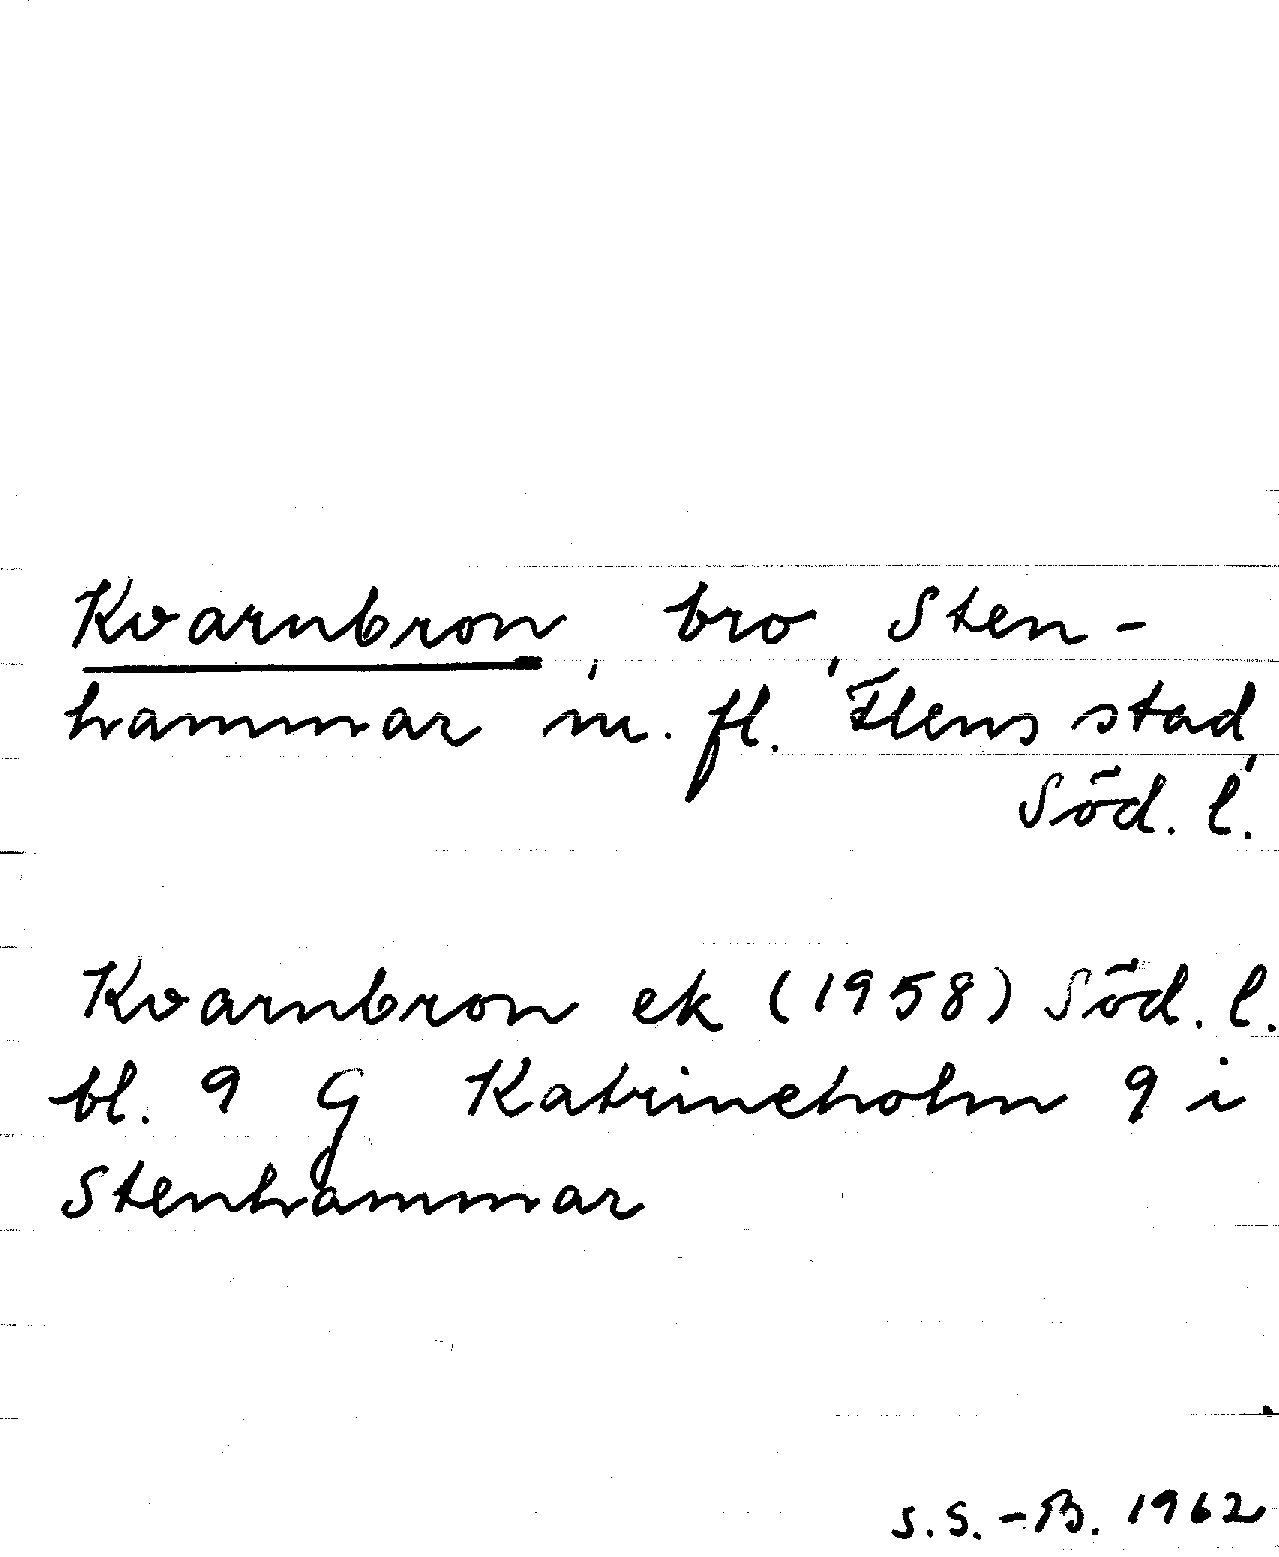 Kvarnbron, bro, Sten-
hammar m. fl. Flens stad,
Söd. l.
Kvarnbron ek (1958) Söd. l.
bl. 9 G Katrineholm 9 i
Stenhammar
S.S.-B. 1962